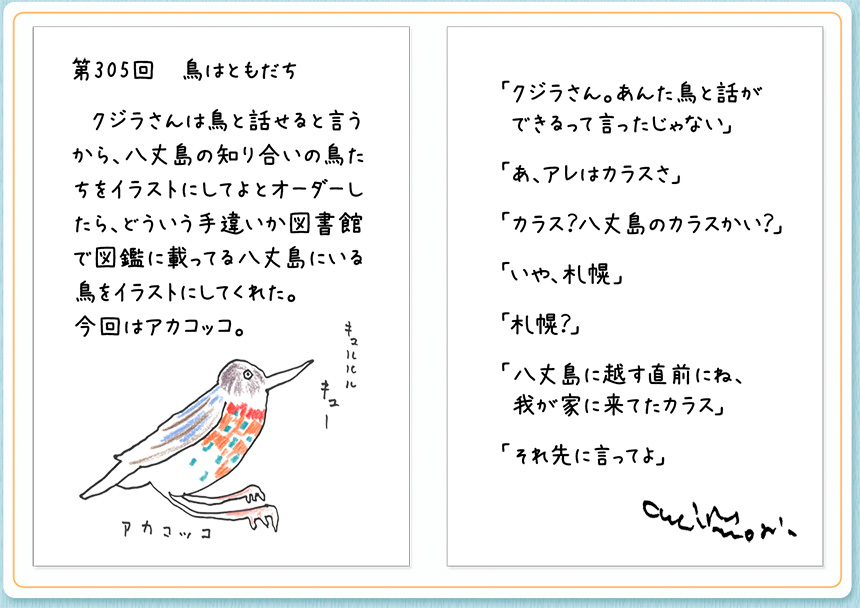 第305回　鳥はともだち
クジラさんは鳥と話せると言う
から、八丈島の知り合いの鳥た
ちをイラストにしてよとオーダーし
たら、どういう手違いか図書館
で図鑑に載ってる八丈島にいる
鳥をイラストにしてくれた。
今回はアカコッコ。
キュルルル
キュー
アカコッコ
「クジラさん。あんた鳥と話が
できるって言ったじゃない」
「あ、アレはカラスさ」
「カラス?八丈島のカラスかい?」
「いや、札幌」
「札幌?」
「八丈島に越す直前にね、
我が家に来てたカラス」
「それ先に言ってよ」